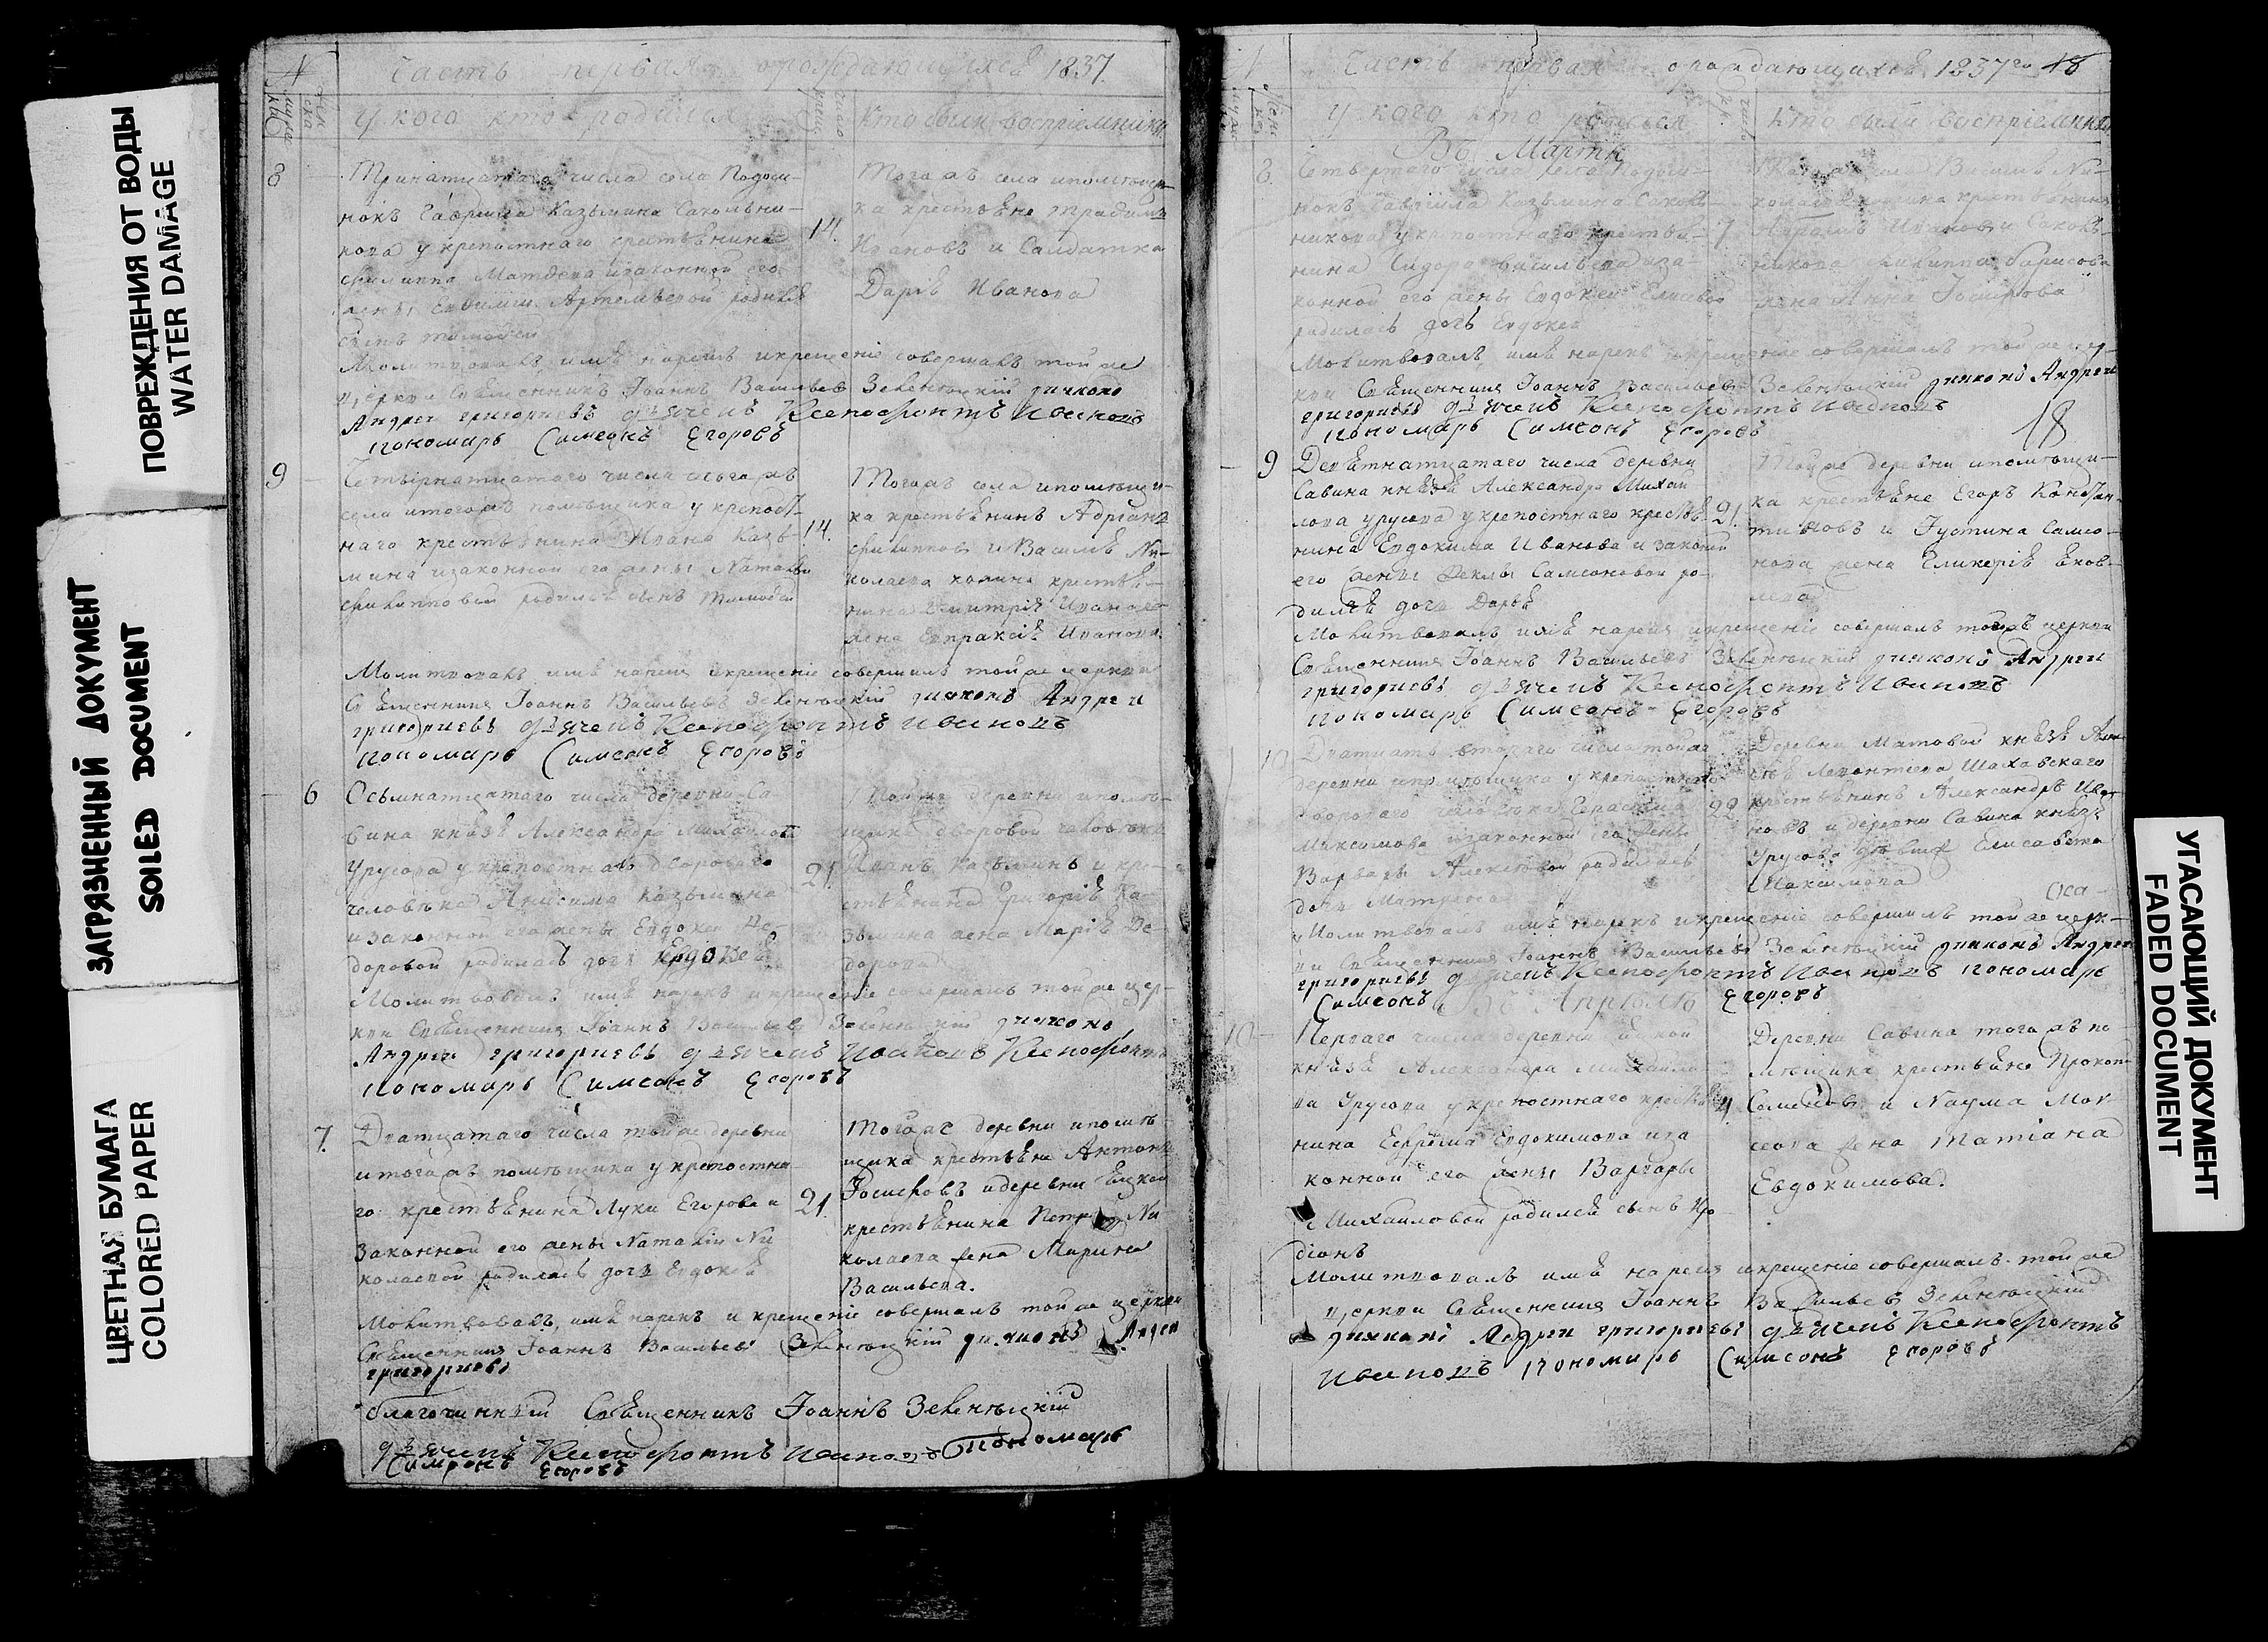 ПОВРЕЖДЕНИЯ ОТ ВОДЫ
WATER DAMAGE
ЗАГРЯЗНЕННЫЙ ДОКУМЕНТ
SOILED DOCUMENT
ЦВЕТНАЯ БУМАГА
COLORED PAPER
Часть первая о рождающихся 1837
у кого кто родился
Кто были восприемники
8
Тринатцатаго числа села Подоси-
нокъ Гавриила Казьмина Сакольни-
кова у крепостнаго крестьянина
Филиппа Матвева и законной его
жены Евдимии Артемьевой родился
сынъ Тимофей
14.
Тогожъ села и помещи-
ка крестьяне
Ивановъ и Салдатка
Дарья Иванова
Молитвовалъ имя нарекъ и крещение совершалъ тойже
церкви Священникъ Иоаннъ Васильевъ Зеленецкий диаконъ
Андреи григориевъ дьячекъ Ксенофонтъ Ивановъ
пономарь Симеонъ Егоровъ
9
Четырнатцатаго числа тогожъ
села и тогожъ помещика у крепост-
наго крестьянина Ивана Казь-
мина и законной его жены Натальи
Филипповой родился сынъ Тимофей
14.
Тогожъ села и помещи-
ка крестьянинъ Адрианъ
Филипповъ и Василья Ни-
колаева крестья-
нина Димитрия Иванова
жена Евпраксия Иванова
Молитвовалъ имя нарекъ и крещение совершалъ тойже церкви
Священникъ Иоаннъ Васильевъ Зеленецкий диаконъ Андреи
григориевъ дьячекъ Ксенофонтъ Ивановъ
пономарь Симеонъ Егоровъ
6
Осьмнатцатаго числа деревни Са-
вина князя Александра Михайлова
Урусова у крепостнаго двороваго
человека Анисима Казьмина
и законной его жены Евдокеи Фе-
доровой родилась дочь Евдокея
21.
Тойже деревни и поме-
щика дворовой человекъ
Иванъ Казьминъ и кре-
стьянина Григорья Ка-
зьмина жена Марья Фе-
дорова
Молитвовалъ имя нарекъ и крещение совершалъ тойже цер-
кви Священникъ Иоаннъ Васильевъ Зеленецкий диаконъ
Андреи григориевъ дьячекъ Ивановъ Ксенофонтъ
пономарь Симеонъ Егоровъ
7.
Дватцатаго числа тойже деревни
и тогожъ помещика у крепостна-
го крестьянина Луки Егорова и
законной его жены Наталии Ни-
колаевой родилась дочь Евдокея
21.
Тогоже деревни и поме-
щика крестьяне Антонъ
Иосифовъ и деревни
крестьянина Петра Ни-
колаева жена Марина
Васильева.
Молитвовалъ, имя нарекъ и крещение совершалъ тойже церкви
Священникъ Иоаннъ Васильевъ Зеленецкий диаконъ Андреи
григориевъ
благочинный Священникъ Иоаннъ Зеленецкий
дьячекъ Ксенофонтъ Ивановъ пономарь
Симеонъ Егоровъ
Часть первая о рождающихся 1837го 18
У кого кто родился
Кто были восприемники
Въ Марте
8.
Четвертаго числа села Подоси-
нокъ Гавриила Казьмина Саколь-
никова у крепостнаго крестья-
нина Сидора Васильева и за-
конной его жены Евдокеи Елисевой
родилась дочь Евдокея
7
жена Анна Иосифова
Молитвовалъ имя нарекъ и крещение совершалъ тойже цер-
кви Священникъ Иоаннъ Васильевъ Зеленецкий диаконъ Андреи
григориевъ дьячекъ Ксенофонтъ Ивановъ
пономарь Симеонъ Егоровъ
18
9
Девятнатцатаго числа деревни
Савина князя Александра Михай-
лова Урусова у крепостнаго крестья-
нина Евдокима Иванова и законой
его жены Феклы Самсоновой ро-
дилася дочь Дарья
21.
Тойже деревни и помещи-
ка крестьяне Егоръ Констан-
тиновъ и Густина Самсо-
нова жена Гликерия Яков-
лева
Молитвовалъ имя нарекъ и крещение совершалъ тогожъ церкви
Священникъ Иоаннъ Васильевъ Зеленецкий диаконъ Андреи
григориевъ дьячекъ Ксенофонтъ Ивановъ
пономарь Симеонъ Егоровъ
Дватцать втораго числа тойже
деревни и помещика у крепостнаго
двороваго человека Герасима
Максимова и законной его жены
Варвары Алексеевой родилась
дочь Матрена
22
Деревни Матовой князя
Леонтьева Шаховскаго
крестьянинъ Александръ Ива-
новъ и деревни Савина князя
Урусова девица Елисавета
Максимова
Молитвовалъ имя нарекъ и крещение совершалъ тойже церк-
ви Священникъ Иоаннъ Васильевъ Зеленецкий диаконъ Андреи
григориевъ дьячекъ Ксенофонтъ Ивановъ пономарь
Симеонъ Егоровъ
Въ Апреле
10
Перваго числа деревни
князя Александра Михайло-
ва Урусова у крепостнаго крестья-
нина Ефрема Евдокимова и за-
конной его жены Варвары
Михайловой родился сынъ Иро-
дионъ
4.
Деревни Савина тогожъ по-
мещика крестьяне Прокопий
Семеновъ и Наума Мои-
сеева жена Татиана
Евдокимова.
Молитвовалъ имя нарекъ и крещение совершалъ тойже
церкви Священникъ Иоаннъ Васильевъ Зеленецкий
диаконъ Андреи григориевъ дьячекъ Ксенофонтъ
Ивановъ пономарь Симеонъ Егоровъ
УГАСАЮЩИЙ ДОКУМЕНТ
FADED DOCUMENT